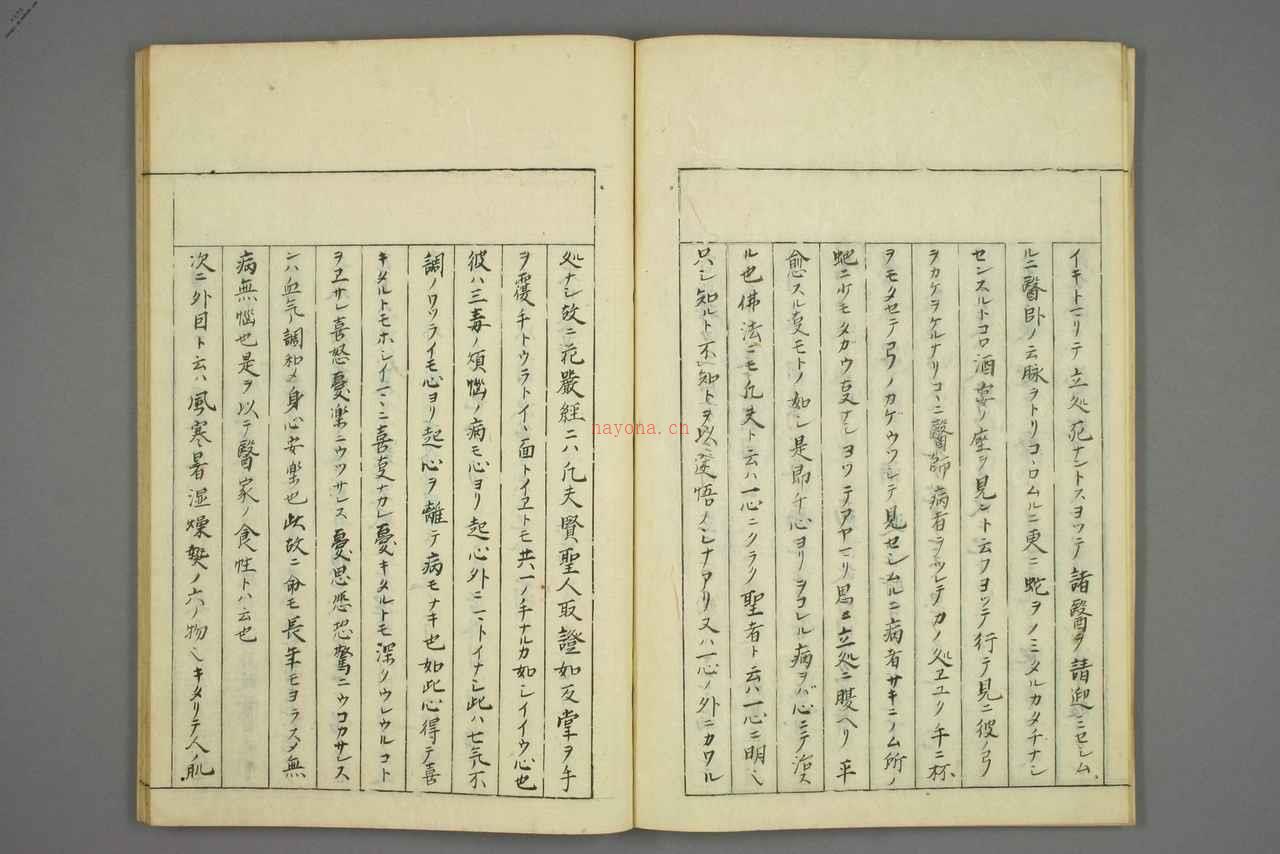 イキトマリテ立処死ナントスヨツテ諸醫ヲ請迎ニセシム
ルニ醫卧ノ云脉ヲトリコヽロムルニ更ニ蛇ヲノミタルカタチナシ
センスルトコロ酒宴ノ座ヲ見ント云フヨツテ行テ見ニ彼ノ弓
ヲカケヲケルナリコヽニ醫師病者ヲツレテカノ処ヱユク手ニ杯
ヲモタセテ弓ノカゲウツシテ見セシムルニ病者サキニノム所ノ
蛇ニ少モタカウ夏ナシヨツテアヤマリ思ヱ立処ニ腹ヘリ平
愈スル夏モトノ如シ是即チ心ヨリヲコレル病ヲバ心ニテ治ス
ル也佛法ニモ凡夫ト云ハ一心ニクラク聖者ト云ハ一心ニ明シ
只シ知ルト不知トヲ以迷悟ノシナアリ又ハ一心ノ外ニカワル
処ナシ故ニ花嚴經ニハ凡夫賢聖人取證如反掌ヲ手
ヲ覆チトウラトイヽ面トイヱトモ共一ノ手ナルカ如シイイウ心也
彼ハ三毒ノ煩惱ノ病モ心ヨリ起心外ニマトイナシ此ハ七気不
調ノワツライモ心ヨリ起心ヲ離テ病モナキ也如此心得テ喜
キタルトモホシイマヽニ喜夏ナカレ憂キタルトモ深クウレウルコト
ヲヱサレ喜怒憂楽ニウツサレス憂思悲恐驚ニウコカサレス
ンハ血気調和メ身心安楽也此故ニ命モ長年モヨラスメ無
病無惱也是ヲ以テ醫家ノ食性トハ云也
次ニ外因ト云ハ風寒暑湿燥熱ノ六ノ物シキタリテ人ノ肌
hayona.cn